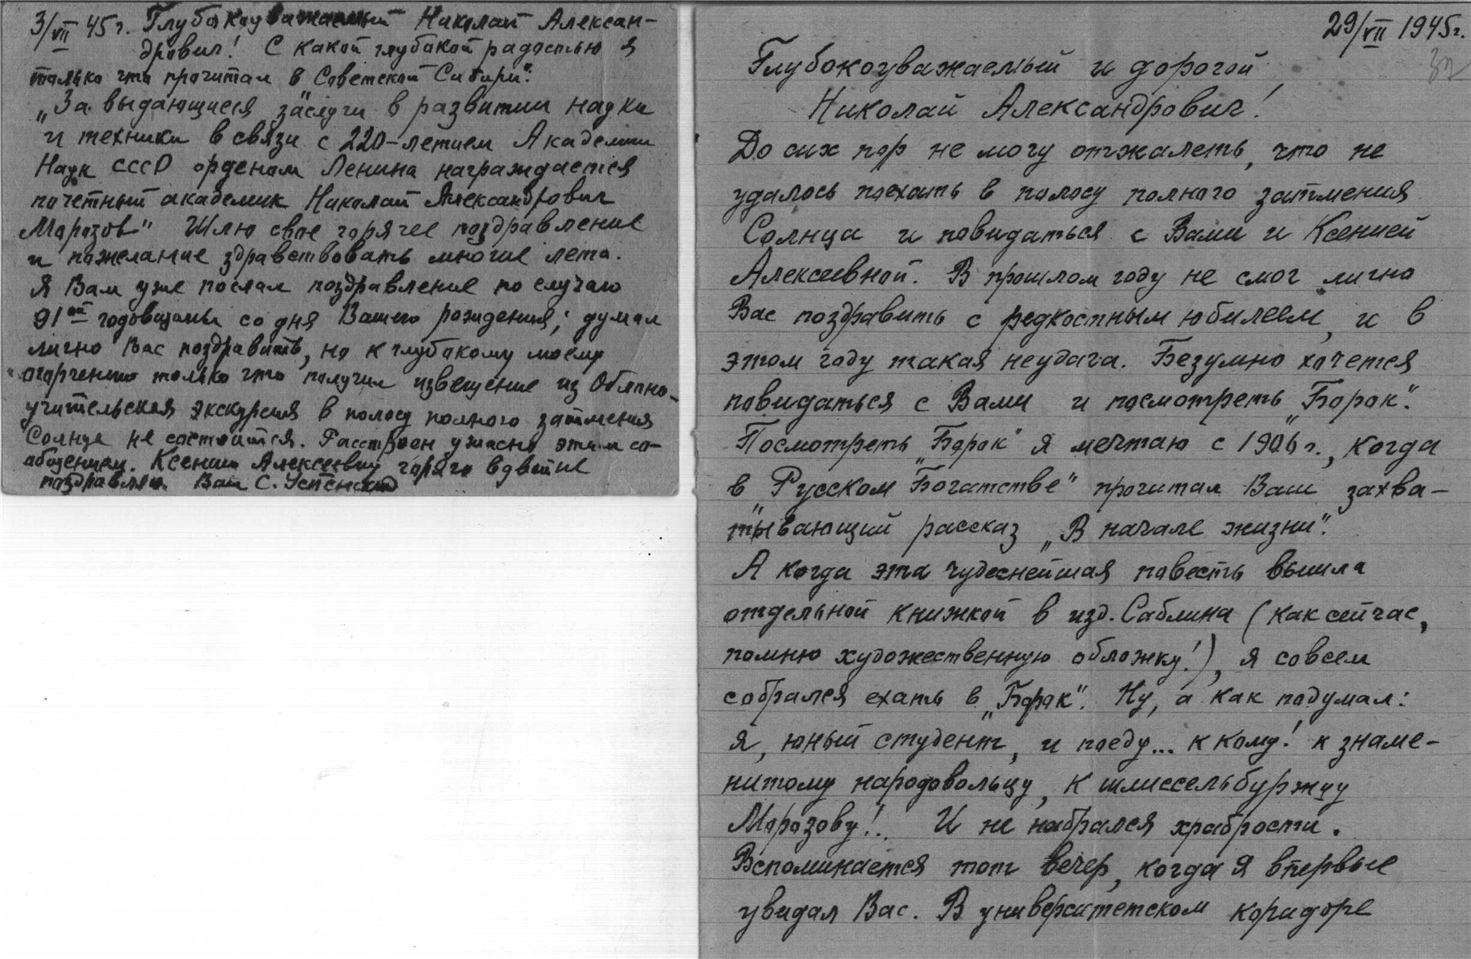 3/VII 45 г. Глубокоуважаемый Николай Алексан-
дрович! С какой глубокой радостью я
только что прочитал в „Советской Сибири":
„За выдающиеся заслуги в развитии науки
и техники в связи с 220-летием Академии
Наук СССР орденом Ленина награждается
почетный академик Николай Александрович
Морозов" Шлю свое горячее поздравление
и пожелание здравствовать многие лета.
Я Вам уже послал поздравление по случаю
91ой годовщины со дня Вашего рождения; думал
лично Вас поздравить, но к глубокому моему
огорчению только что получил извещение из Облоно-
учительская экскурсия в полосу полного затмения
Солнца не состоится. Расстроен ужасно этим со-
общением. Ксению Алексеевну горячо вдвойне
поздравляю. Ваш С. Успенский
29/VII 1945 г.
Глубокоуважаемый и дорогой
Николай Александрович!
До сих пор не могу отжалеть, что не
удалось поехать в полосу полного затмения
Солнца и повидаться с Вами и Ксенией
Алексеевной. В прошлом году не смог лично
Вас поздравить с редкостным юбилеем, и в
этом году такая неудача. Безумно хочется
повидаться с Вами и посмотреть „Борок".
Посмотреть „Борок" я мечтаю с 1906 г., когда
в „Русском Богатстве" прочитал Ваш захва-
тывающий рассказ „В начале жизни".
А когда эта чудеснейшая повесть вышла
отдельной книжкой в изд. Саблина (как сейчас,
помню художественную обложку!), я совсем
собрался ехать в „Борок". Ну, а как подумал:
я, юный студент, и поеду... к кому! к знаме-
нитому народовольцу, к шлиссельбуржцу
Морозову!.. И не набрался храбрости.
Вспоминается тот вечер, когда я впервые
увидал Вас. В университетском коридоре